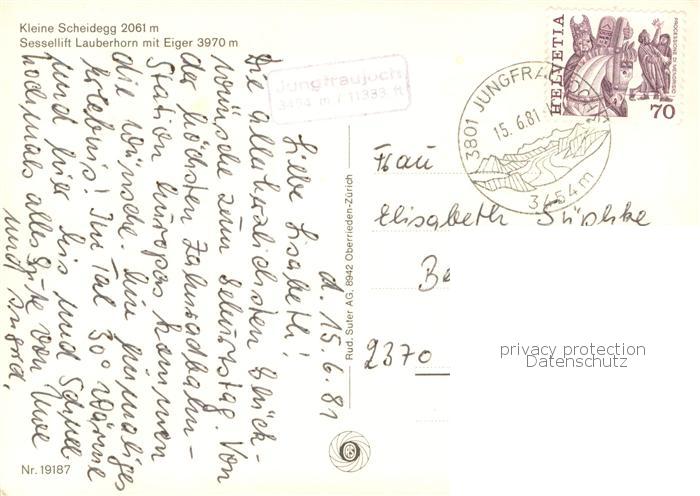 Kleine Scheidegg 2061 m
Sessellift Lauberhorn mit Eiger 3970 m
Jungfraujoch
3454 m / 11333 ft
HELVETIA
PROCESSIONE DI MENDRISIO
70
3801 JUNGFRAUJOCH
15.6.81
3454 m
d. 15.6.81
Liebe Lisabeth!
Die allerherzlichsten Glück-
wünsche zum Geburtstag. Von
der höchsten Zahnradbahn-
Station Europas kommen
die Wünsche. Ein einmaliges
Erlebnis! Im Tal 30° Wärme
und hier Eis und Schnee
nochmals alles Gute von
und
Rud. Suter AG, 8942 Oberrieden-Zürich
Frau
Elisabeth
Be
2370
privacy protection
Datenschutz
Nr. 19187